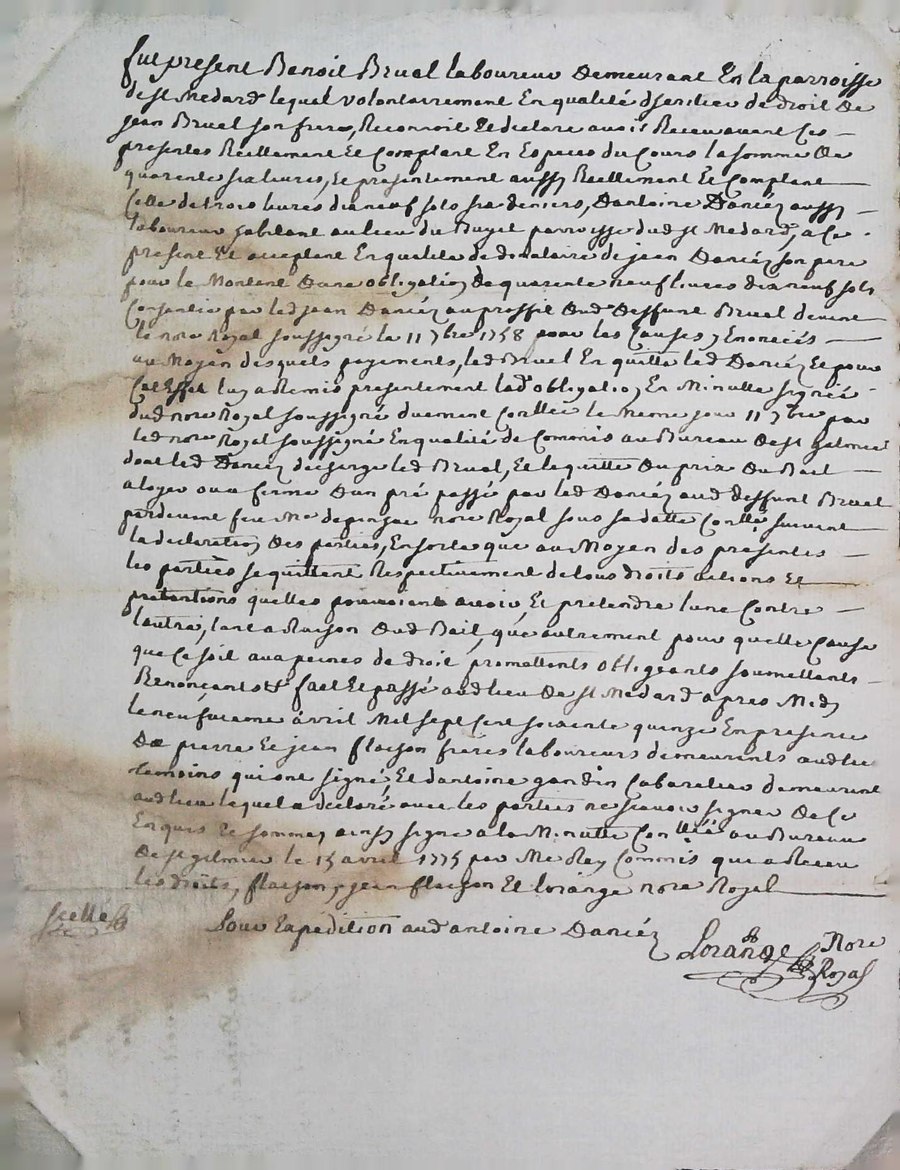 fut present Benoit Bruel laboureur demeurant En la parroisse
de st Medard lequel volontairement En qualité d'heritier de droit de
jean Bruel son frere, Reconnoit Et declare avoir Receu avant Ces
presentes Reellement Et Comptant En Especes du Cours la somme de
quarente six livres, Et presentement aussy Reellement Et Comptant
Celle de trois livres dixneuf sols six deniers, d'antoine Danciez aussy
laboureur habitant au lieu du parroisse dud st Medard, a Ce
present Et acceptant En qualité de donataire de jean Danciez son pere
pour le Montant d'une obligation de quarente neuf livres dixneuf sols
Consentie par led jean Danciez au proffit dud deffunt Bruel devant
le nore Royal soussigné le 11 7bre 1758 pour les Causes y Enoncées
au Moyen desquels payements, led Bruel En quitte led Danciez Et pour
Cet Effet luy a Remis presentement lad obligation En Minutte signée
dud nore Royal soussigné duement Conllée le meme jour 11 7bre par
led nore Royal soussigné En qualité de Commis au Bureau de st galmier
dont led Danciez decharge led Bruel, Et le quitte du prix du Bail
a loyer ou a ferme d'un pré passé par led Danciez aud deffunt Bruel
pardevant feu Me nore Royal sous sa datte Conllé suivant
la declaration des parties, En sorte que au Moyen des presentes
les parties se quittent Respectivement de tous droits actions Et
pretentions quelles pouvoient avoir, Et pretendre l'une Contre
l'autre, tant a Raison dud Bail, que autrement pour quelle Cause
que Ce soit aux peines de droit promettants obligeants soumettants
Renonçants &c fait Et passé aud lieu de st Medard apres Midy
le neufvieme avril Mil sept Cent soixante quinze En presence
de pierre Et jean flachon freres laboureurs demeurants aud lieu
temoins qui ont signé, Et d'antoine gandin Cabaretier demeurant
aud lieu lequel a declaré avec les parties ne sçavoir signer de Ce
Enquis Et sommez ainsy signé a la Minutte Conllée au Bureau
de st gilmier le 15 avril 1775 par Me Rey Commis qui a Receu
les droits, flachon, jean flachon Et Lorange nore Royal
scellé
pour Expedition aud antoine Danciez
Lorange Nore
Royal